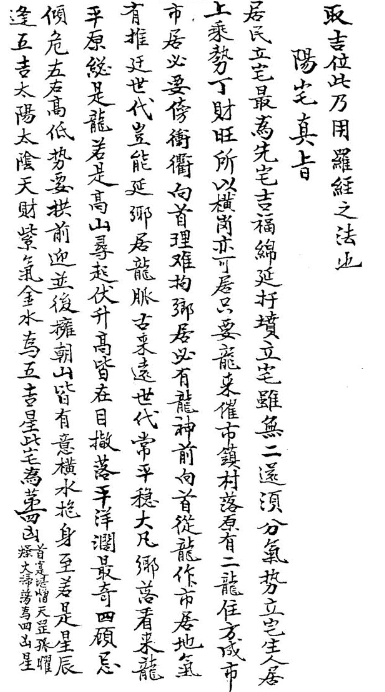 取吉位此乃用羅經之法也
陽宅真旨
居民立宅最為先宅吉福綿延扦墳立宅雖無二還須分氣势立宅生人居
上乘勢丁財旺所以橫崗亦可居只要龍来催市鎮村落原有二龍住方成市
市居必要傍衝衢向首理难拘鄉居必有龍神前向首從龍作市居地氣
有推迁世代豈能延鄉居龍脉古来遠世代常平穩大凡鄉落看来龍
平原総是龍若是高山尋起伏升高皆在目撒落平洋濶最奇四顧忌
傾危左右高低势要拱前迎並後擁朝山皆有意橫水抱身至若是星辰
逢五吉太陽太陰天財紫氣金水為五吉星此宅為第四凶
天罡孤曜
燥火掃蕩為四凶星